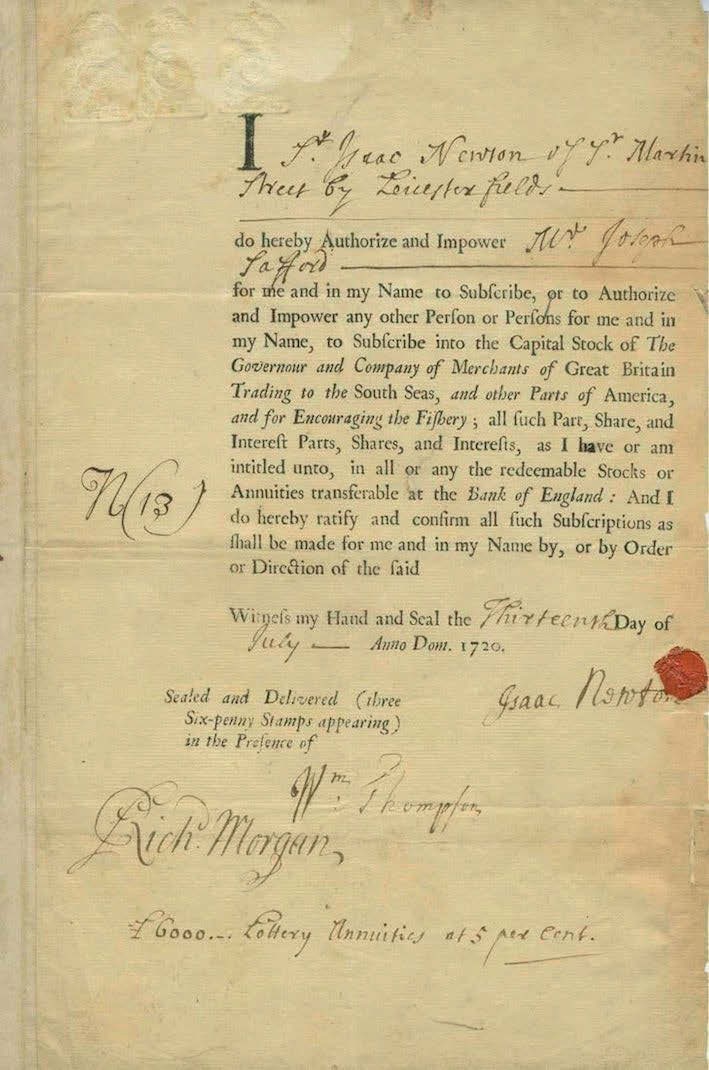 I Sʳ. Isaac Newton of Sᵗ. Martin
Street by Leicester fields
do hereby Authorize and Impower Mʳ Joseph
Safford
for me and in my Name to Subſcribe, or to Authorize
and Impower any other Perſon or Perſons for me and in
my Name, to Subſcribe into the Capital Stock of The
Governour and Company of Merchants of Great Britain
Trading to the South Seas, and other Parts of America,
and for Encouraging the Fiſhery ; all ſuch Part, Share, and
Intereſt Parts, Shares, and Intereſts, as I have or am
intitled unto, in all or any the redeemable Stocks or
Annuities transferable at the Bank of England : And I
do hereby ratify and confirm all ſuch Subſcriptions as
ſhall be made for me and in my Name by, or by Order
or Direction of the ſaid
N(13)
Witneſs my Hand and Seal the Thirteenth Day of
July Anno Dom. 1720.
Isaac Newton
Sealed and Delivered (three
Six-penny Stamps appearing)
in the Preſence of
Wᵐ: Thompſon
Richᵈ. Morgan
£6000.-. Lottery Annuities at 5 per Cent.